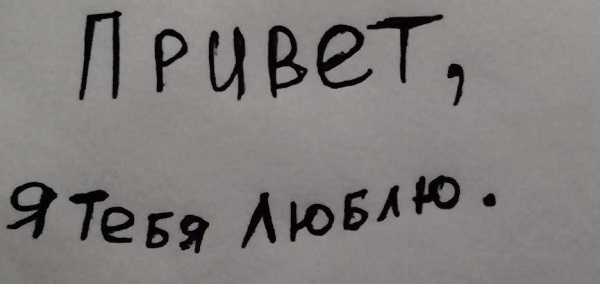 Привет,
я тебя люблю.